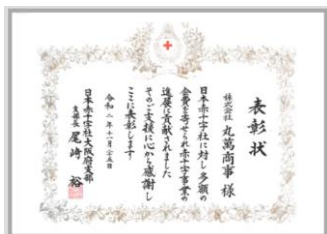 表彰状
株式会社 丸萬商事 様
日本赤十字社に対し多額の
金費を寄せられ赤十字事業の
進展に貢献されました
そのご支援に心から感謝し
ここに表彰します
令和二年十一月二十五日
日本赤十字社大阪府支部
支部長 尾﨑 裕